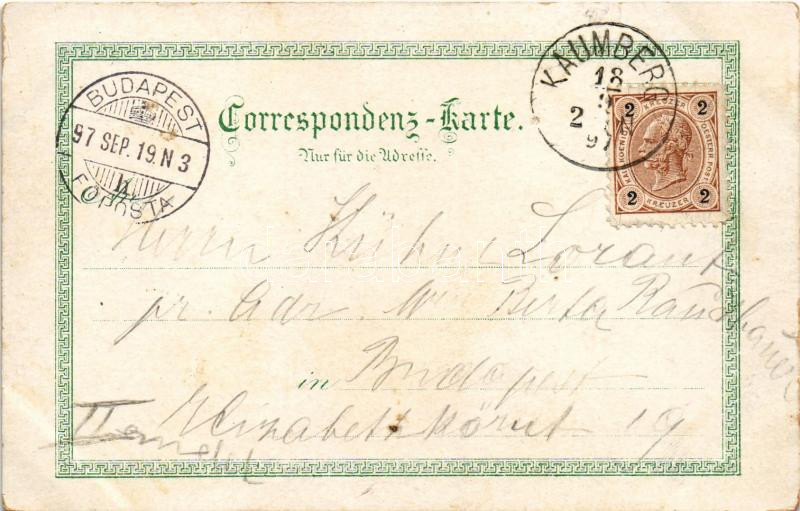 KAUMBERG
18
9
2
97
BUDAPEST
97 SEP. 19. N 3
FŐPOSTA
2 2
KREUZER
KAIS. KOENIGL. OESTERR. POST.
2 2
KREUZER
Correspondenz-Karte.
Nur für die Adresse.
Herrn Kühne Lorant
pr. Adr. Berta
in Budapest
Elizabethkörut 19
II emelet